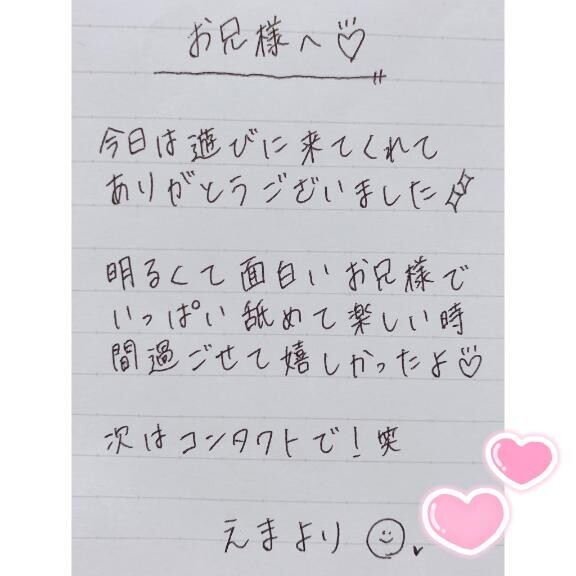 お兄様へ♡
今日は遊びに来てくれて
ありがとうございました
明るくて面白いお兄様で
いっぱい舐めて楽しい時
間過ごせて嬉しかったよ♡
次はコンタクトで！笑
えまより